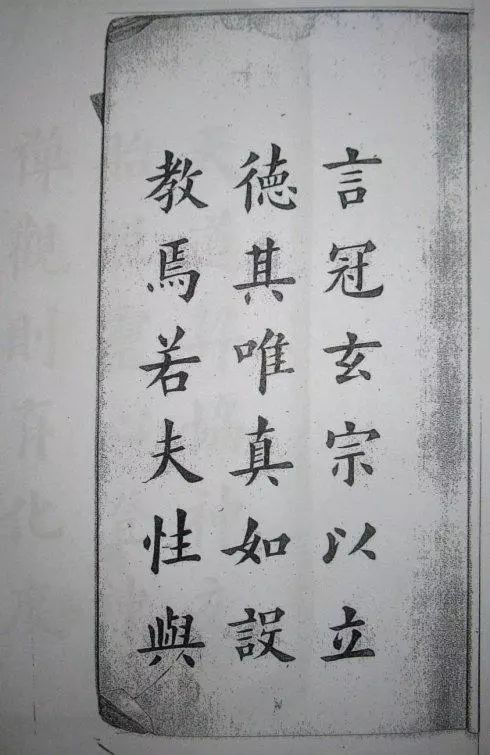 言冠玄宗以立
德其唯真如設
教焉若夫性與